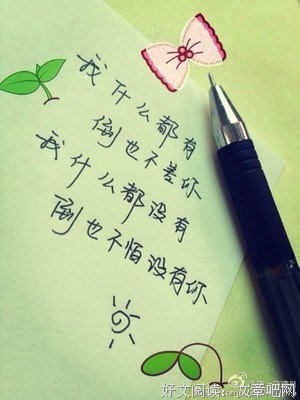 我什么都有
倒也不差你
我什么都没有
倒也不怕没有你
好文阅读：文章吧网